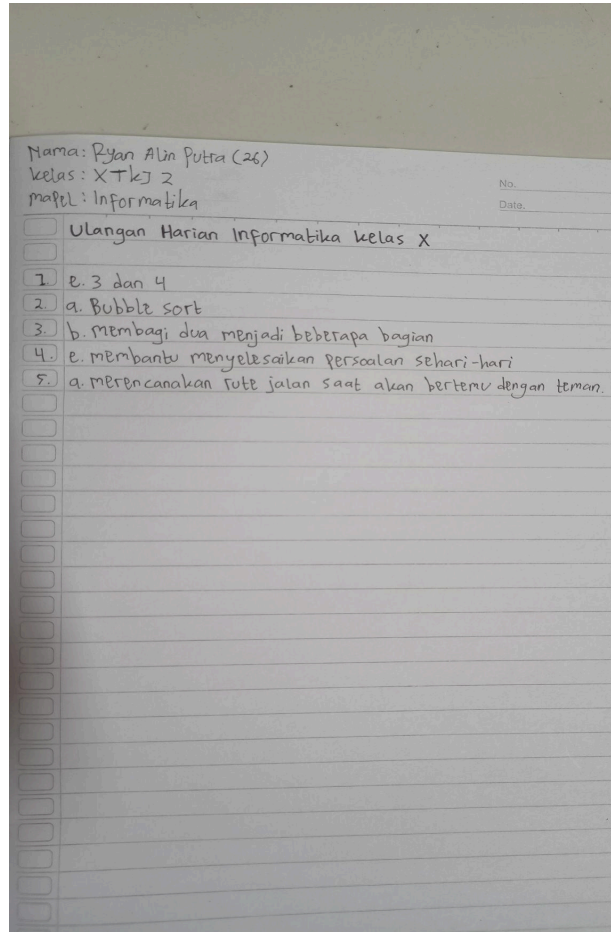 Nama: Ryan Alin Putra (26)
Kelas : X TKJ 2
mapel : Informatika
No.
Date.
Ulangan Harian Informatika kelas X
1 e. 3 dan 4
2. a. Bubble sort
3. b. membagi dua menjadi beberapa bagian
4. e. membantu menyelesaikan persoalan sehari-hari
5. a. merencanakan rute jalan saat akan bertemu dengan teman.